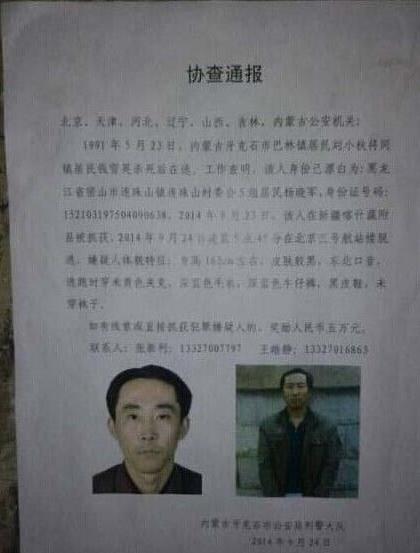 协查通报
北京、天津、河北、辽宁、山西、吉林、内蒙古公安机关：
1991年5月23日，内蒙古牙克石市巴林镇居民刘小秋将同
镇居民钱雪英杀死后在逃。工作查明，该人身份已漂白为：黑龙
江省密山市连珠山镇连珠山村委会5组居民杨晓军，身份证号码：
152103197504090638。2014年8月23日，该人在新疆喀什疏附
县被抓获，2014年9月24日凌晨5点45分在北京三号航站楼脱
逃，嫌疑人体貌特征：身高162cm左右，皮肤较黑，东北口音，
逃跑时穿米黄色夹克，深蓝色毛衣，深蓝色牛仔裤，黑皮鞋，未
穿袜子。
如有线索或直接抓获犯罪嫌疑人的，奖励人民币五万元。
联系人：张泰利：13327007797 王皓静：13327016863
内蒙古牙克石市公安局刑警大队
2014年9月24日